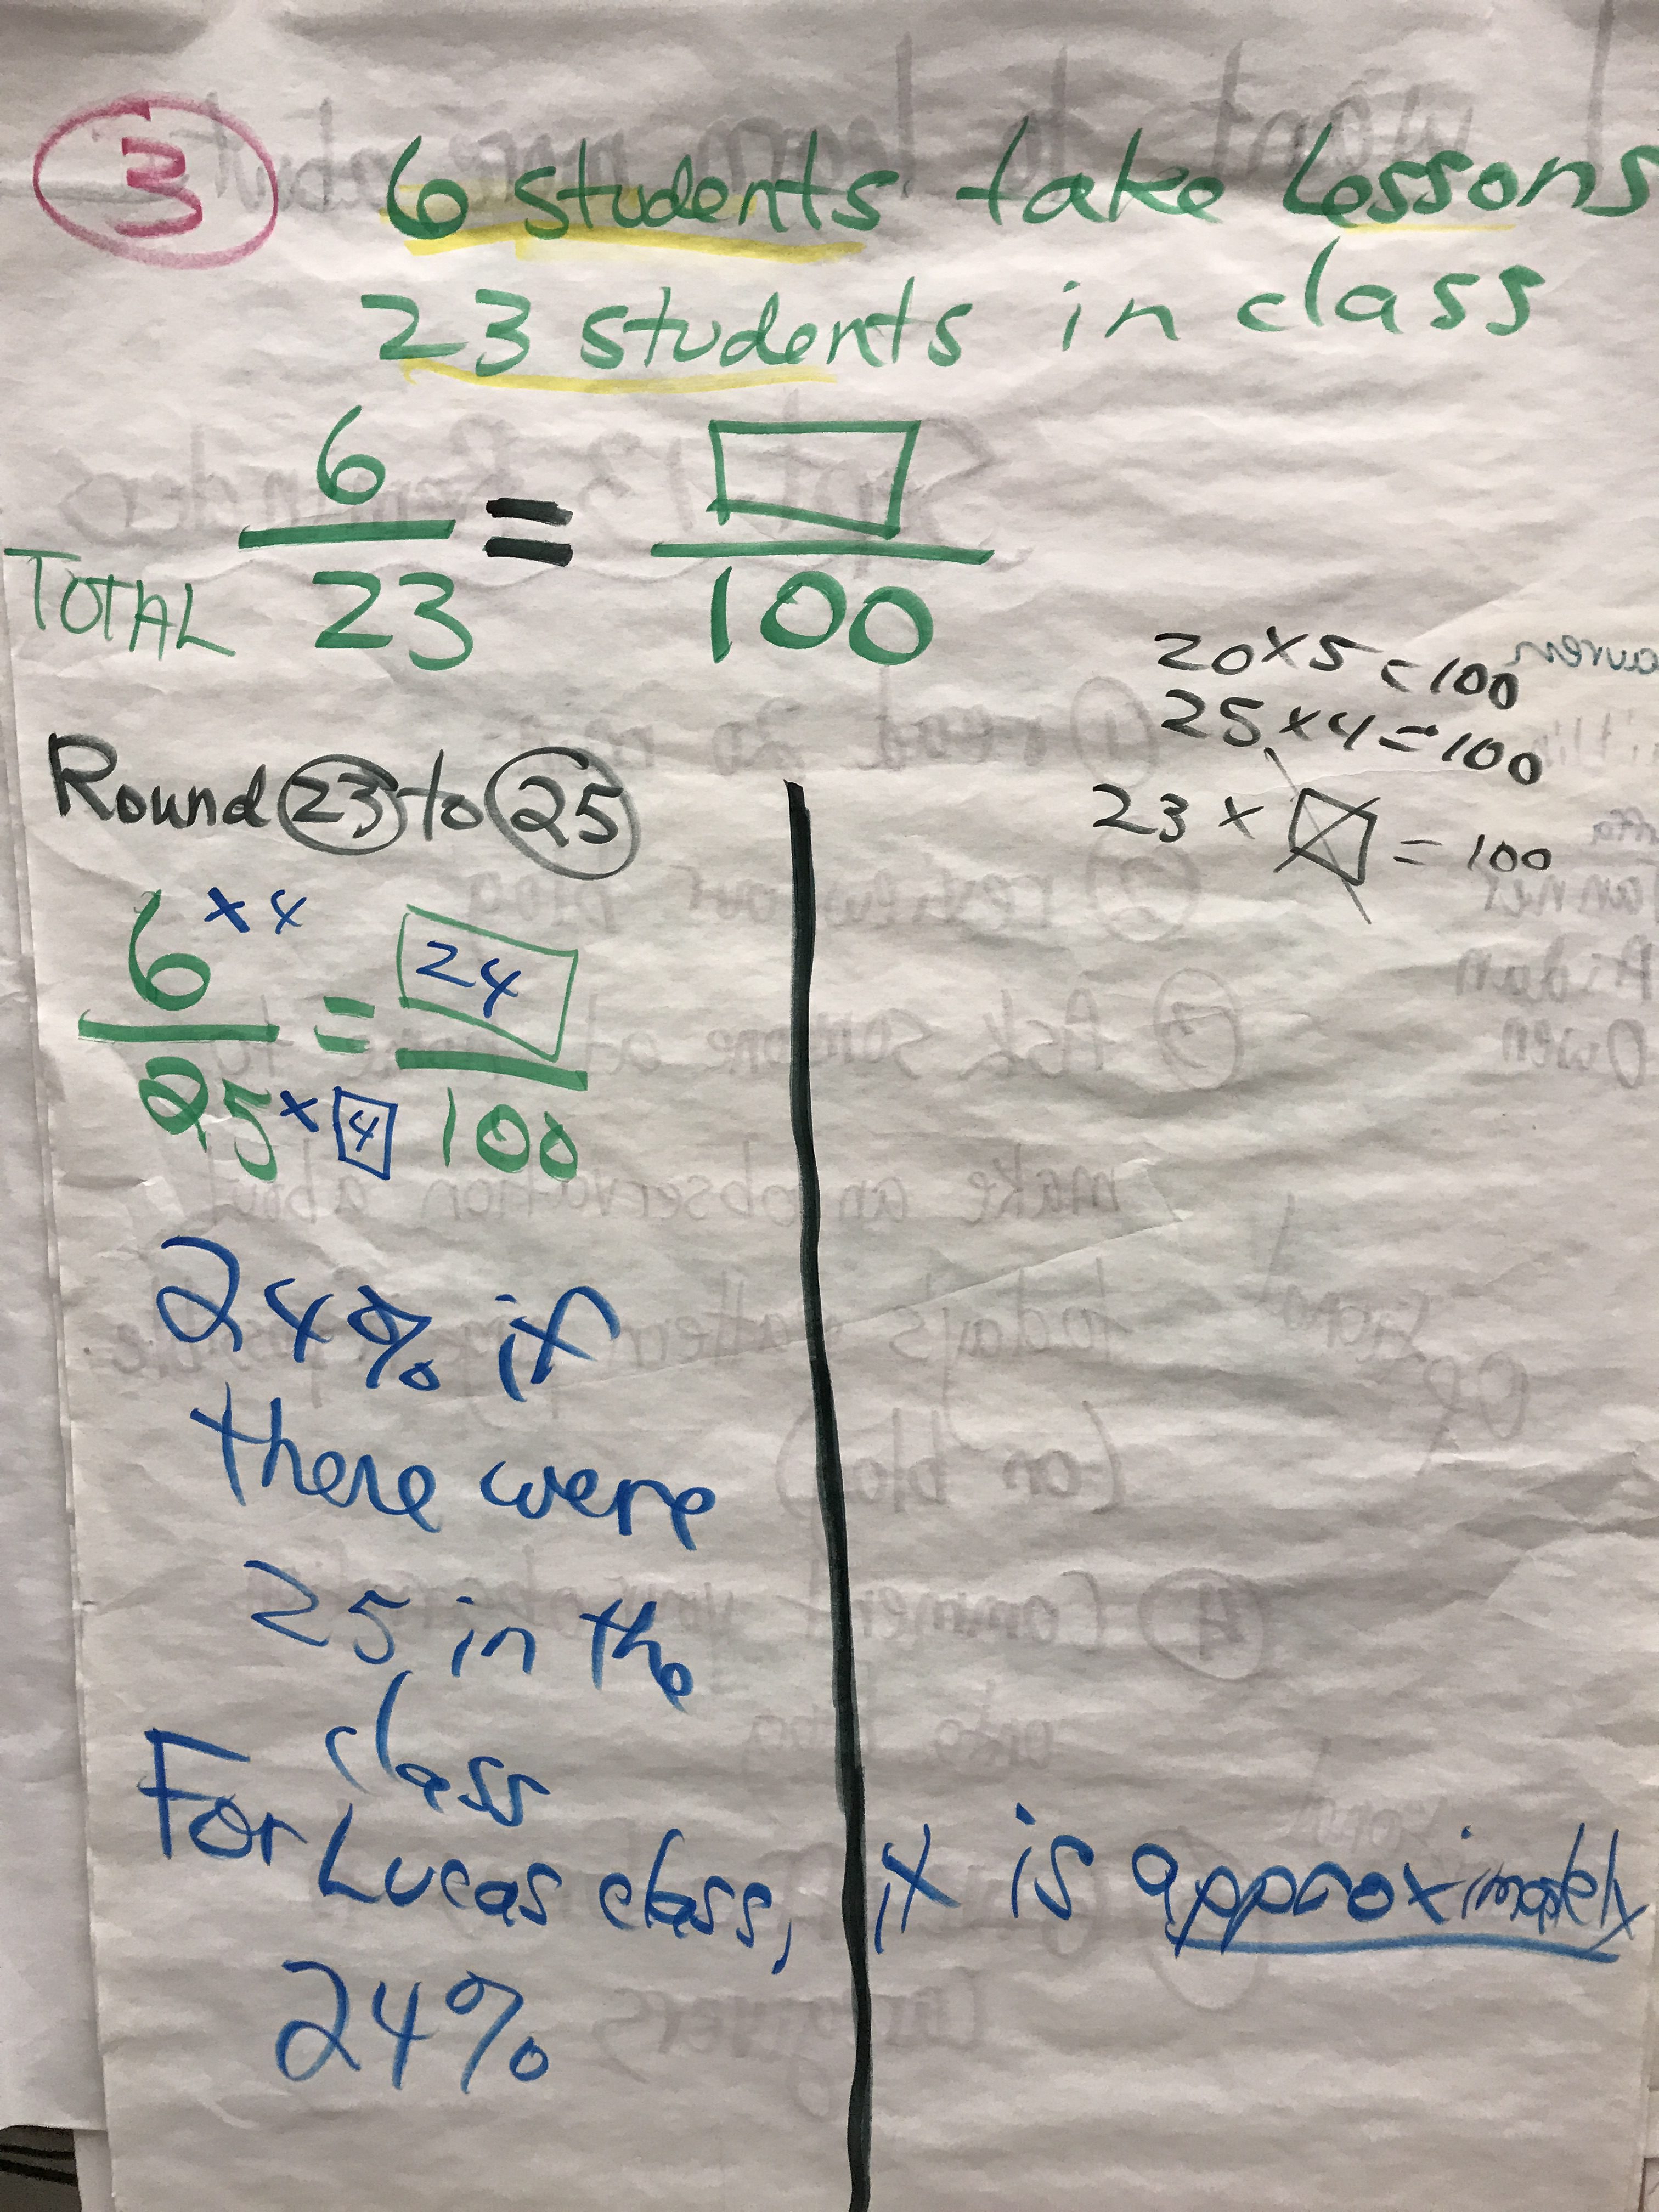 3
6 students take lessons
23 students in class
6/23 = □/100
TOTAL
20 x 5 = 100
25 x 4 = 100
23 x □ = 100
Round 23 to 25
6 x 4 / 25 x 4 = 24/100
24% if
there were
25 in the
class
For Lucas class, it is approximately
24%